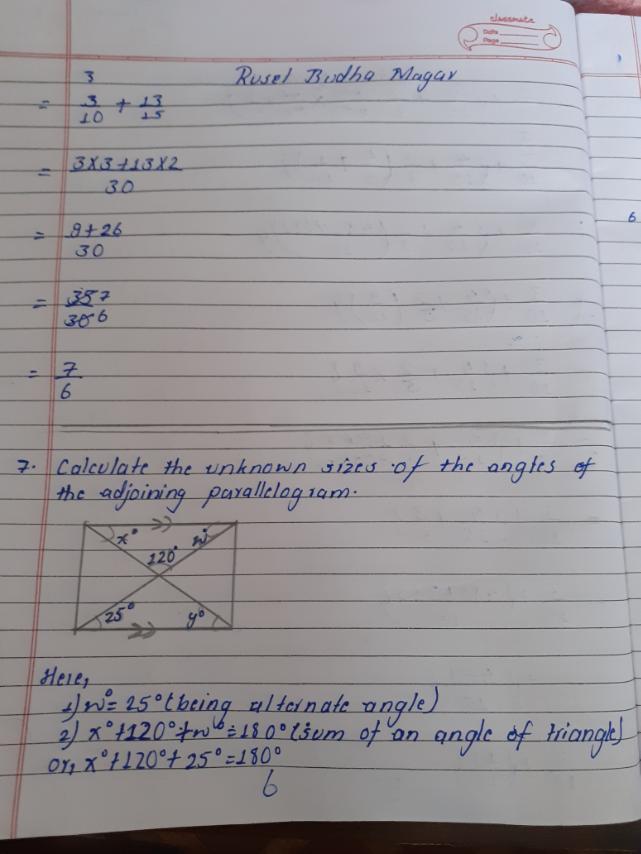 classmate
Date
Page
3
Rusel Budha Magar
= 3/10 + 13/15
= 3X3+13X2/30
= 9+26/30
= 35 7/30 6
= 7/6
6
7. Calculate the unknown sizes of the angles of
the adjoining parallelogram.
x° w°
120°
25° y°
Here,
1) w° = 25° (being alternate angle)
2) x°+120°+w°=180° (sum of an angle of triangle)
or, x°+120°+25°=180°
6